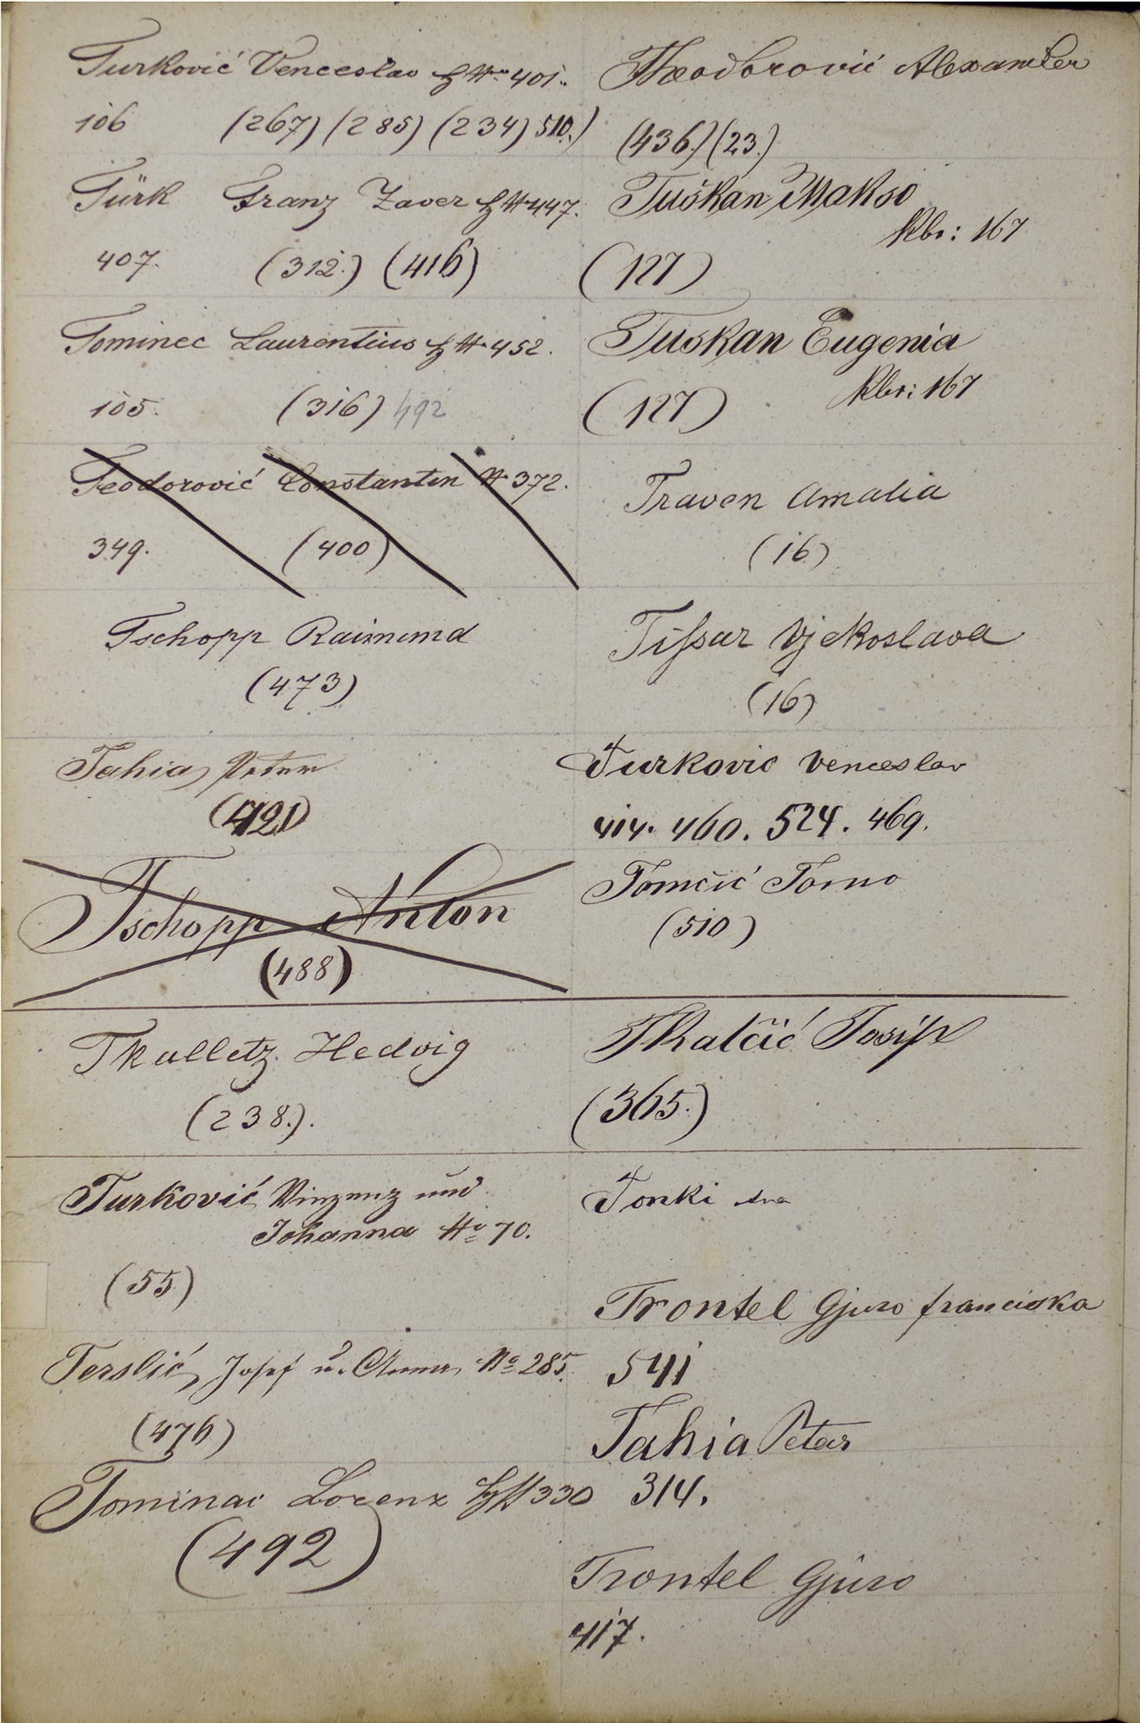 Turković Venceslav H№ 401.
106 (267) (285) (234) 510.)
Türk Franz Xaver H№ 447.
407. (312.) (416)
Tominec Laurentius H№ 452.
105. (316) 492
Teodorović Constantin № 372.
349. (400)
Tschopp Raimund
(473)
Tahia Peter
(421)
Tschopp Anton
(488)
Tkalletz Hedvig
(238.).
Turković Vinzenz und
Johanna № 70.
(55)
Terslić Josef u. Anna № 285.
(476)
Tominac Lorenz H№ 330
(492)
Theodorović Alexander
(436.) (23.)
Tuškan Makso
kbr: 167
(127)
Tuskan Eugenia
kbr: 167
(127)
Traven Amalia
(16)
Tifsar Vjekoslava
(16)
Turkovic Venceslav
414. 460. 524. 469.
Tomčić Tomo
(510)
Tkalčić Josip
(365.)
Tonki
Trontel Gjuro franciska
541
Tahia Petar
314.
Trontel Gjuro
417.